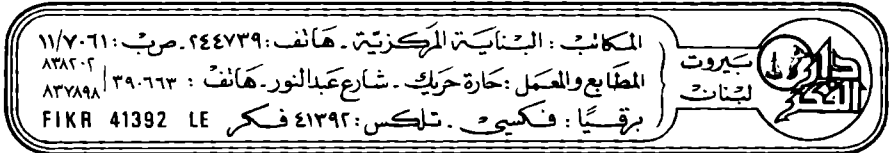 دار الفكر
بيروت
لبنان
المكاتب : البناية المركزية ـ هاتف : ٢٤٤٧٣٩ ـ ص ب : ١١/٧٠٦١
المطابع والمعمل : حارة حريك ـ شارع عبد النور ـ هاتف : ٣٩٠٦٦٣ / ٨٣٨٢٠٢ ٨٣٧٨٩٨
برقيًا : فكسي ـ تلكس : ٤١٣٩٢ فكر FIKR 41392 LE